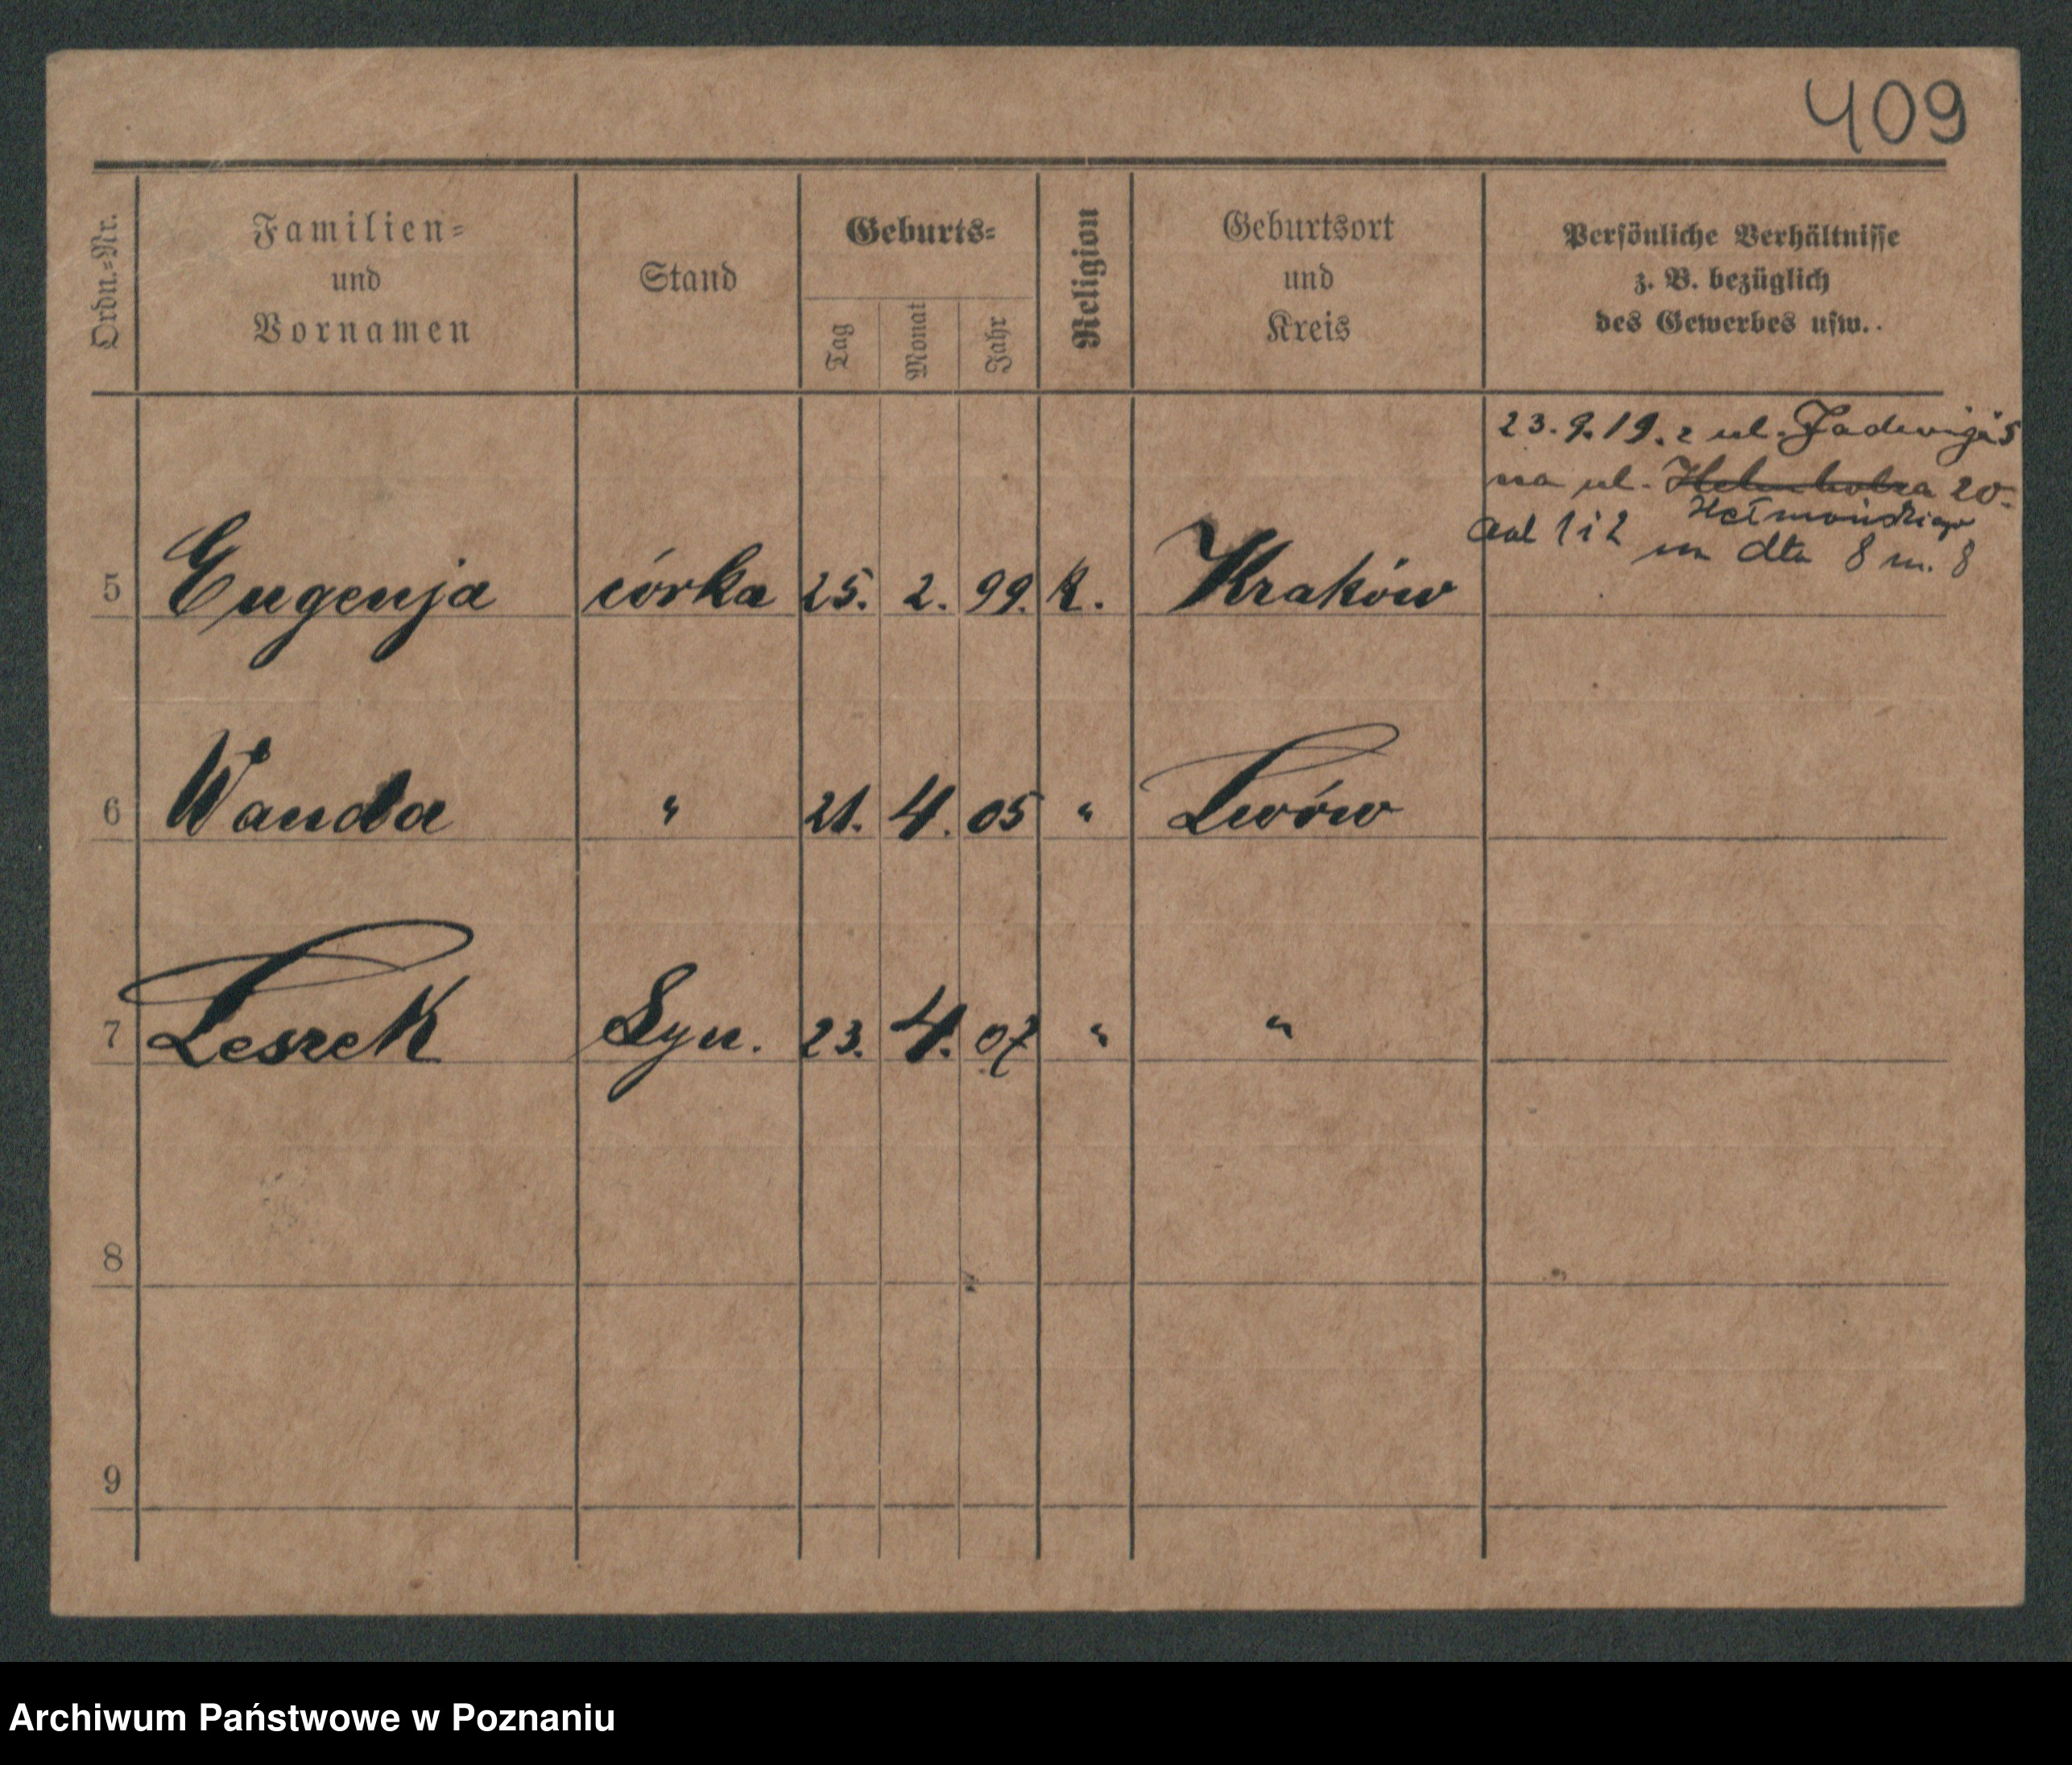 409
Ordn.=Nr.
Familien=
und
Vornamen
Stand
Geburts=
Tag
Monat
Jahr
Religion
Geburtsort
und
Kreis
Persönliche Verhältnisse
z. B. bezüglich
des Gewerbes usw..
23.9.19. z ul. Jadwigi 5
na ul. Helmholza 20
Hełmońskiego
ad 1 i 2 m dta 8 m. 8
5 Eugenja córka 25. 2. 99. K. Kraków
6 Wanda " 21. 4. 05 " Lwów
7 Leszek Syn. 23. 4. 07 " "
8
9
Archiwum Państwowe w Poznaniu